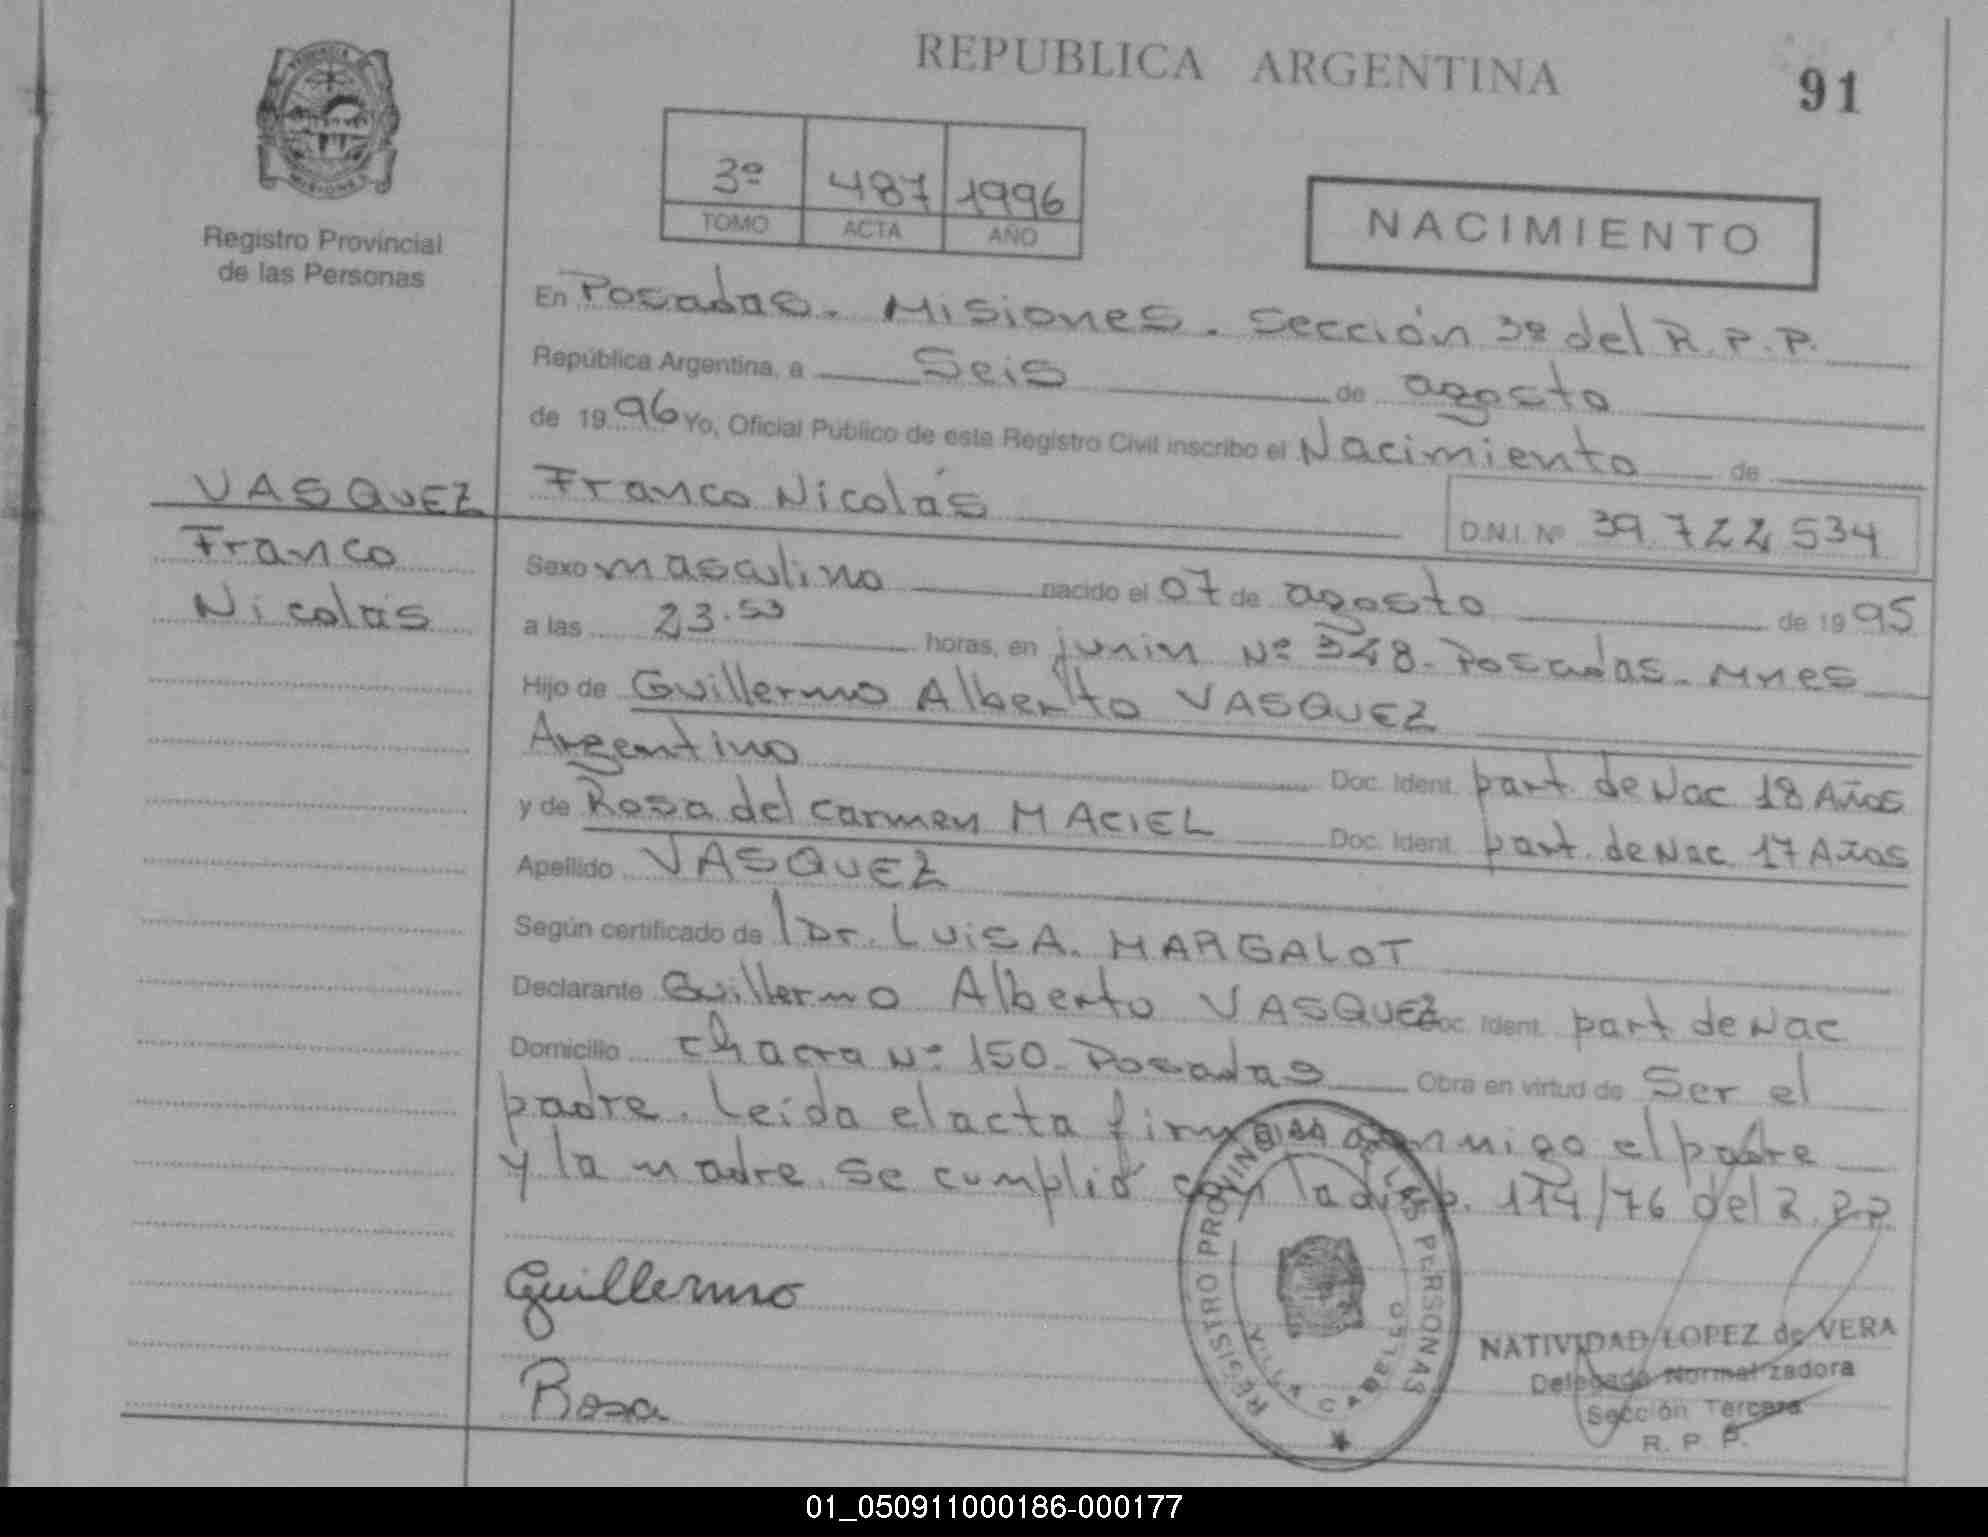 REPUBLICA ARGENTINA
91
PROVINCIA
MISIONES
Registro Provincial
de las Personas
3º 487 1996
TOMO ACTA AÑO
NACIMIENTO
En Posadas. Misiones. Sección 3º del R.P.P.
República Argentina, a Seis de agosto
de 1996 Yo, Oficial Público de este Registro Civil inscribo el Nacimiento de
VASQUEZ
Franco
Nicolás
Franco Nicolás
D.N.I. Nº 39.722 534
Sexo masculino nacido el 07 de agosto de 1995
a las 23.53 horas, en junin Nº 348. Posadas. Mnes
Hijo de Guillermo Alberto VASQUEZ
Argentino Doc. Ident. part. de Nac 18 Años
y de Rosa del Carmen MACIEL Doc. Ident. part. de Nac. 17 Años
Apellido VASQUEZ
Según certificado de Dr. LUIS A. MARGALOT
Declarante Guillermo Alberto VASQUEZ Doc. Ident. part de Nac
Domicilio Chacra Nº 150. Posadas Obra en virtud de Ser el
padre. Leída el acta firman conmigo el padre
y la madre. Se cumplió con la disp. 114/76 del R.P.P.
Guillermo
Rosa
REGISTRO PROVINCIAL DE LAS PERSONAS
VILLA CABELLO
NATIVIDAD LOPEZ de VERA
Delegada Normalizadora
Sección Tercera
R. P. P.
01_050911000186-000177